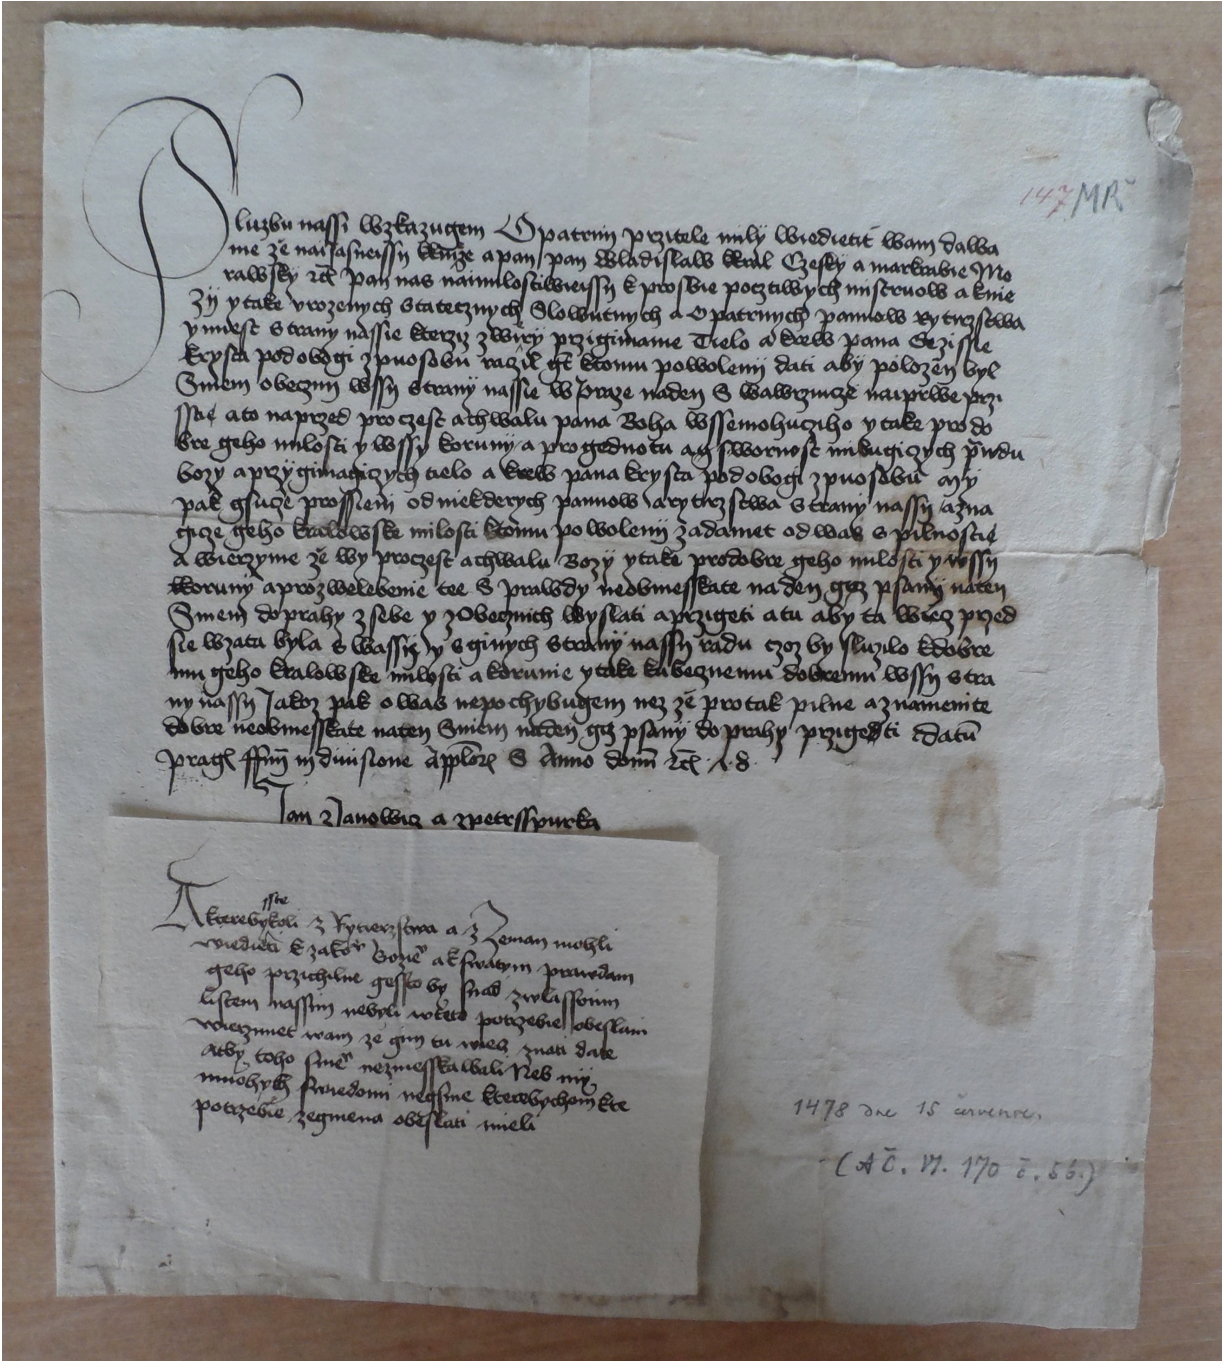 147 MR
Sluzbu nassi wzkazugem Opatrnij przitele mily wiedietit wam dawa
me ze naijasneissy knize a pan pan Wladislaw kral Czesky a markrabie Mo
rawsky etc pan nas naimilostiwieissy k prosbie pocztiwych mistruow a knie
zij y take vrozenych statecznych Slowutnych a Opatrnych pannow Rytirzstwa
y miest strany nassie kterziz z wiry przigimame Tielo a krew pana Gezisse
krysta pod obogi zpuosobu raczil gt ktomu powolenij dati aby polozen byl
Sniem obecznij wssij strany nassie w Praze naden S wawrzincze naiprwe przi
sstie ato naprzed pro czest a chwalu pana Boha wssemohucziho y take pro do
bre geho milosti y wssy koruny a pro gednotu a swornost milugiczych prawdu
bozy a przygimagiczych tielo a krew pana krysta pod obogi zpuosobu My
pak gsucze prosseni od niekderych pannow a rytirzstwa strany nassij a zna
gicze geho kralowske milosti ktomu powolenij zadamet od was s pilnostie
A wierzyme ze wy pro czest a chwalu Bozy y take pro dobre geho milosti y wssij
koruny a pro zwelebenie tee S prawdy neobmesskate na den giz psany naten
Sniem do prahy z sebe y z Obecznich wyslati a przigeti a tu aby ta wiecz przed
sie wzata byla s wassij y s ginych strany nassij radu czoz by sluzilo kdobre
mu geho kralowske milosti a korunie y take kobecznemu dobremu wssij stra
ny nassij Jakoz pak o was nepochybugem nez ze pro tak pilne a znamenite
dobre neobmesskate naten Sniem naden giz psany do prahy przigeti Datum
Prage in diuisione Applorum S Anno domini etc
Jan z Janowicz a z Petrsspurka
A kterebysste koli z Rytierzstwa a z Zeman mohli
wiedieti k zakonu bozimu a k swatym prawdam
geho przichilne gessto by snad zwlasstnim
listem nassim nebyli w teto potrzebie obeslani
wierzimet wam ze gim tu wiecz znati date
at by toho sniemu nezmesskawali Neb my
mnohych swiedomi negsme kterebychom kte
potrzebie zegmena obeslati mieli
1478 dne 15 července.
(AČ. VI. 170 č. 56.)